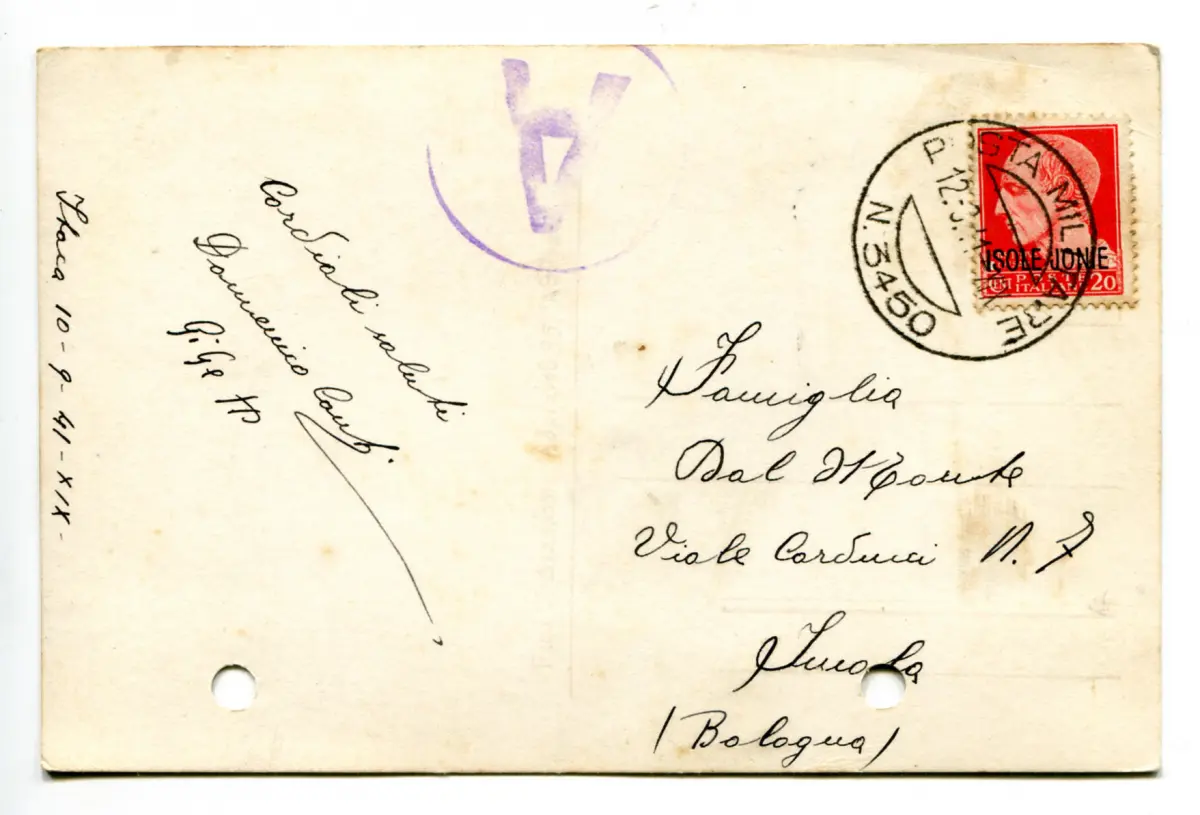 Itaca 10-9-41-XIX-
Cordiali saluti
Domenico Conti
A
POSTA MILITARE
N.3450
12.9.41
ISOLE JONIE
POSTE
ITALIANE
20
Famiglia
Dal Monte
Viale Carducci N. 7
Imola
(Bologna)